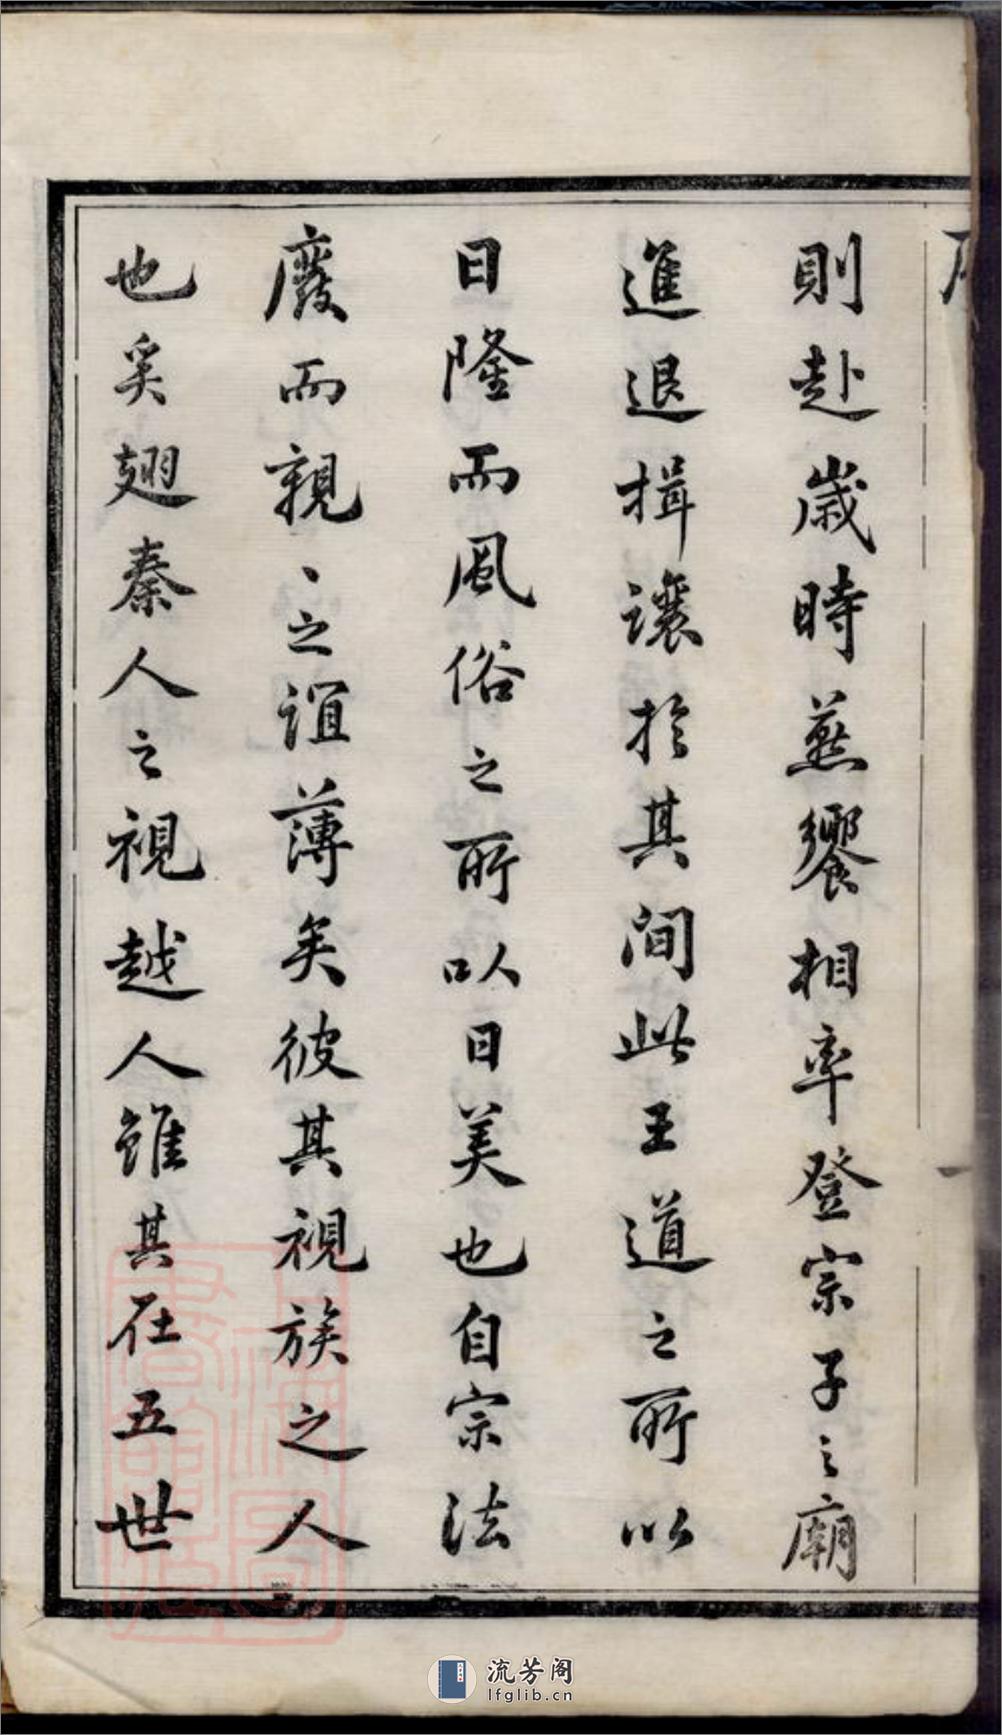 則赴歲時蒸饗相率登宗子之廟
進退揖讓於其間此王道之所以
日隆而風俗之所以日美也自宗法
廢而親丶之誼薄矣彼其視族之人
也奚翅秦人之視越人雖其在五世
流芳阁
lfglib.cn